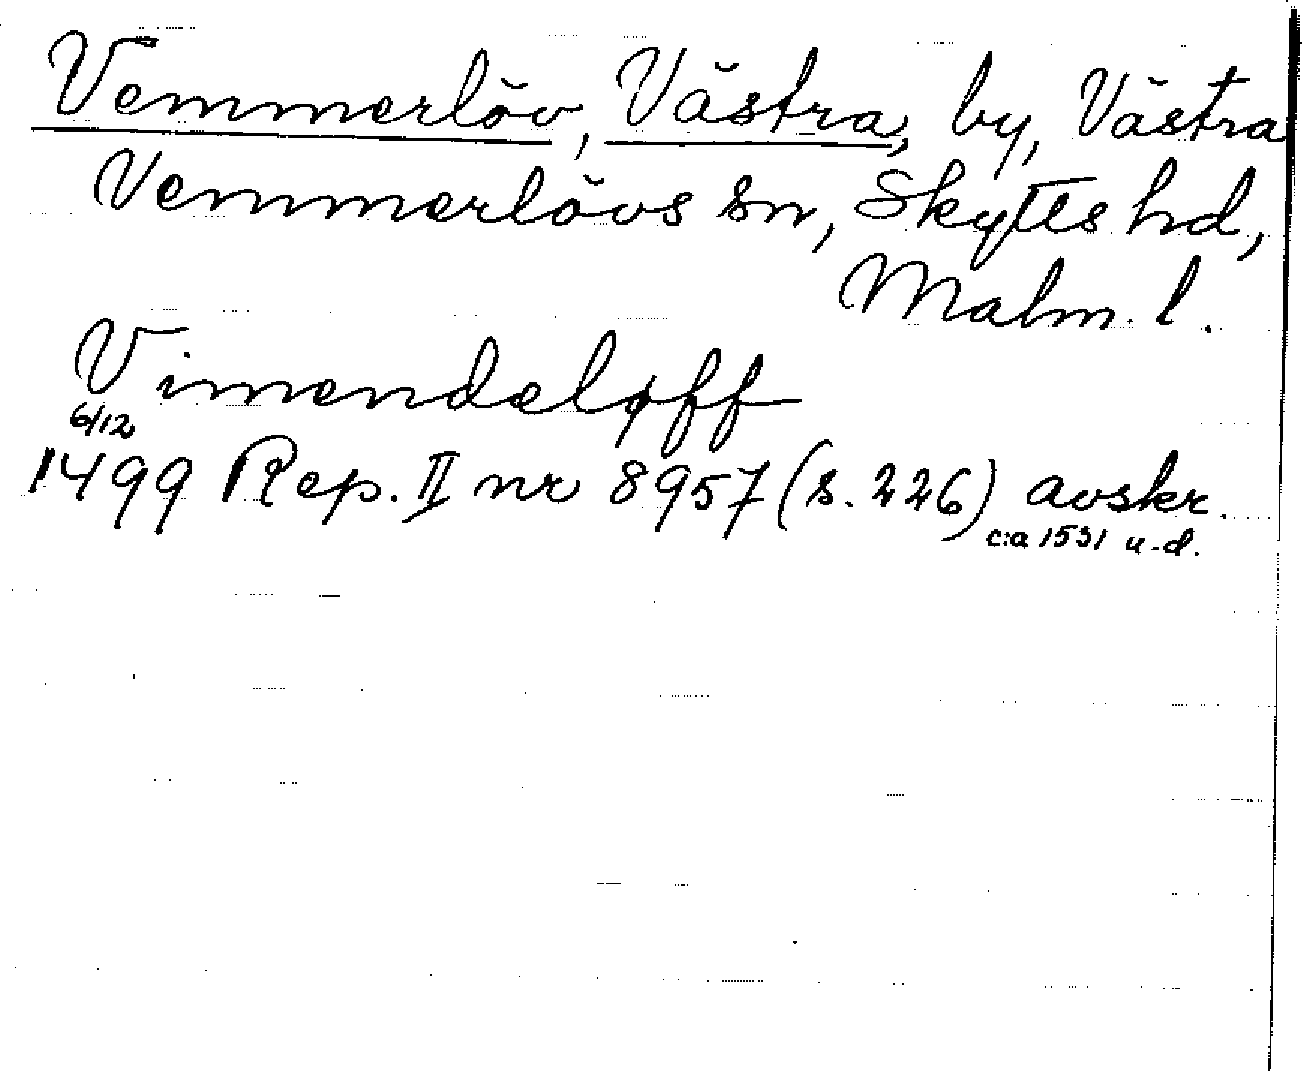 Vemmerlöv, Västra, by, Västra
Vemmerlövs sn, Skytts hd,
Malm. l.
Vimendeløff
6/12
1499 Rep. II nr 8957 (s. 226) avskr.
c:a 1531 u.d.